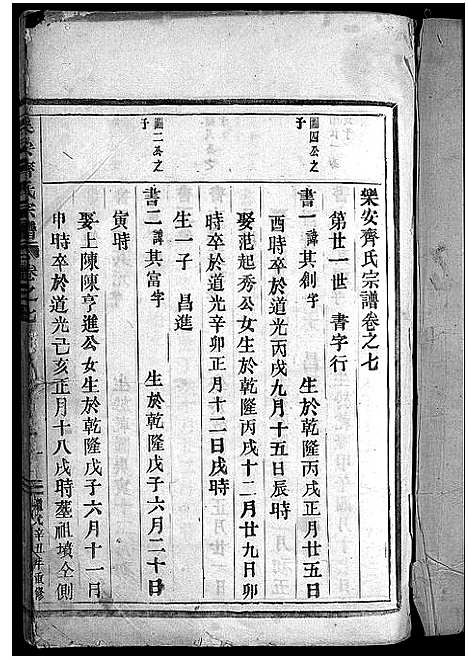 樂安齊氏宗譜卷之七
第廿一世 書字行
四公之子
書一諱其創字 生於乾隆丙戌正月廿五日
酉時卒於道光丙戌九月十五日辰時
娶范起秀公女生於乾隆丙戌十二月廿九日卯
時卒於道光辛卯正月十二日戌時
生一子 昌進
二公之子
書二諱其富字 生於乾隆戊子六月二十日
寅時
娶上陳陳亨進公女生於乾隆戊子六月十一日
申時卒於道光己亥正月十八戌時墓祖墳仝側
樂安齊氏宗譜 卷之七
光辛丑年重修